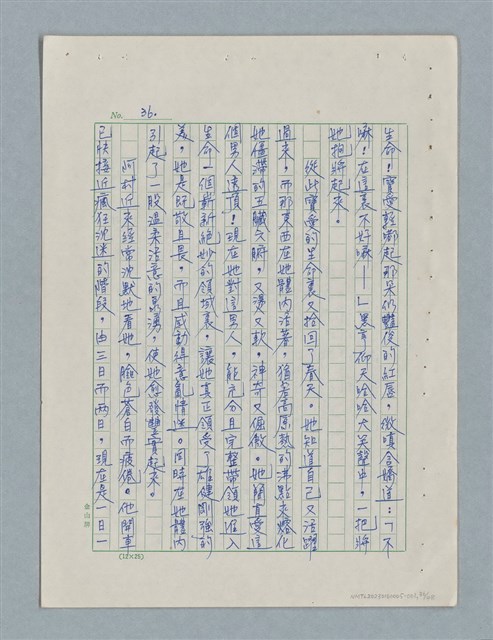 No. 36.
生命!寶愛輕嘟起那朵仍豔俊的紅唇,微嗔含嬌道:「不
嘛!在這裏不好嘛——」黑亨仰天哈哈大笑聲中,一把將
她抱將起來。
從此寶愛的生命裏又拾回了春天。她知道自己又活躍
過來,而那東西在她體內活著,猶若高原熱的沸點來熔化
她僵滯的五臟六腑,又燙又軟,神奇又倔傲。她簡直愛這
個男人透頂!現在她對這男人,能充分且完整帶領她進入
生命一個嶄新絕妙的領域裏,讓她真正領受了雄健剛強的
美,她是既敬且畏,而且感動得意亂情迷。同時在她體內
引起了一股溫柔活意的蕩漾,使她愈發豐實起來。
阿村近來經常沈默地看她,臉色蒼白而疲倦。他開車
已快接近瘋狂沈迷的階段,由三日而兩日,現在是一日一
金山牌
(12×25)